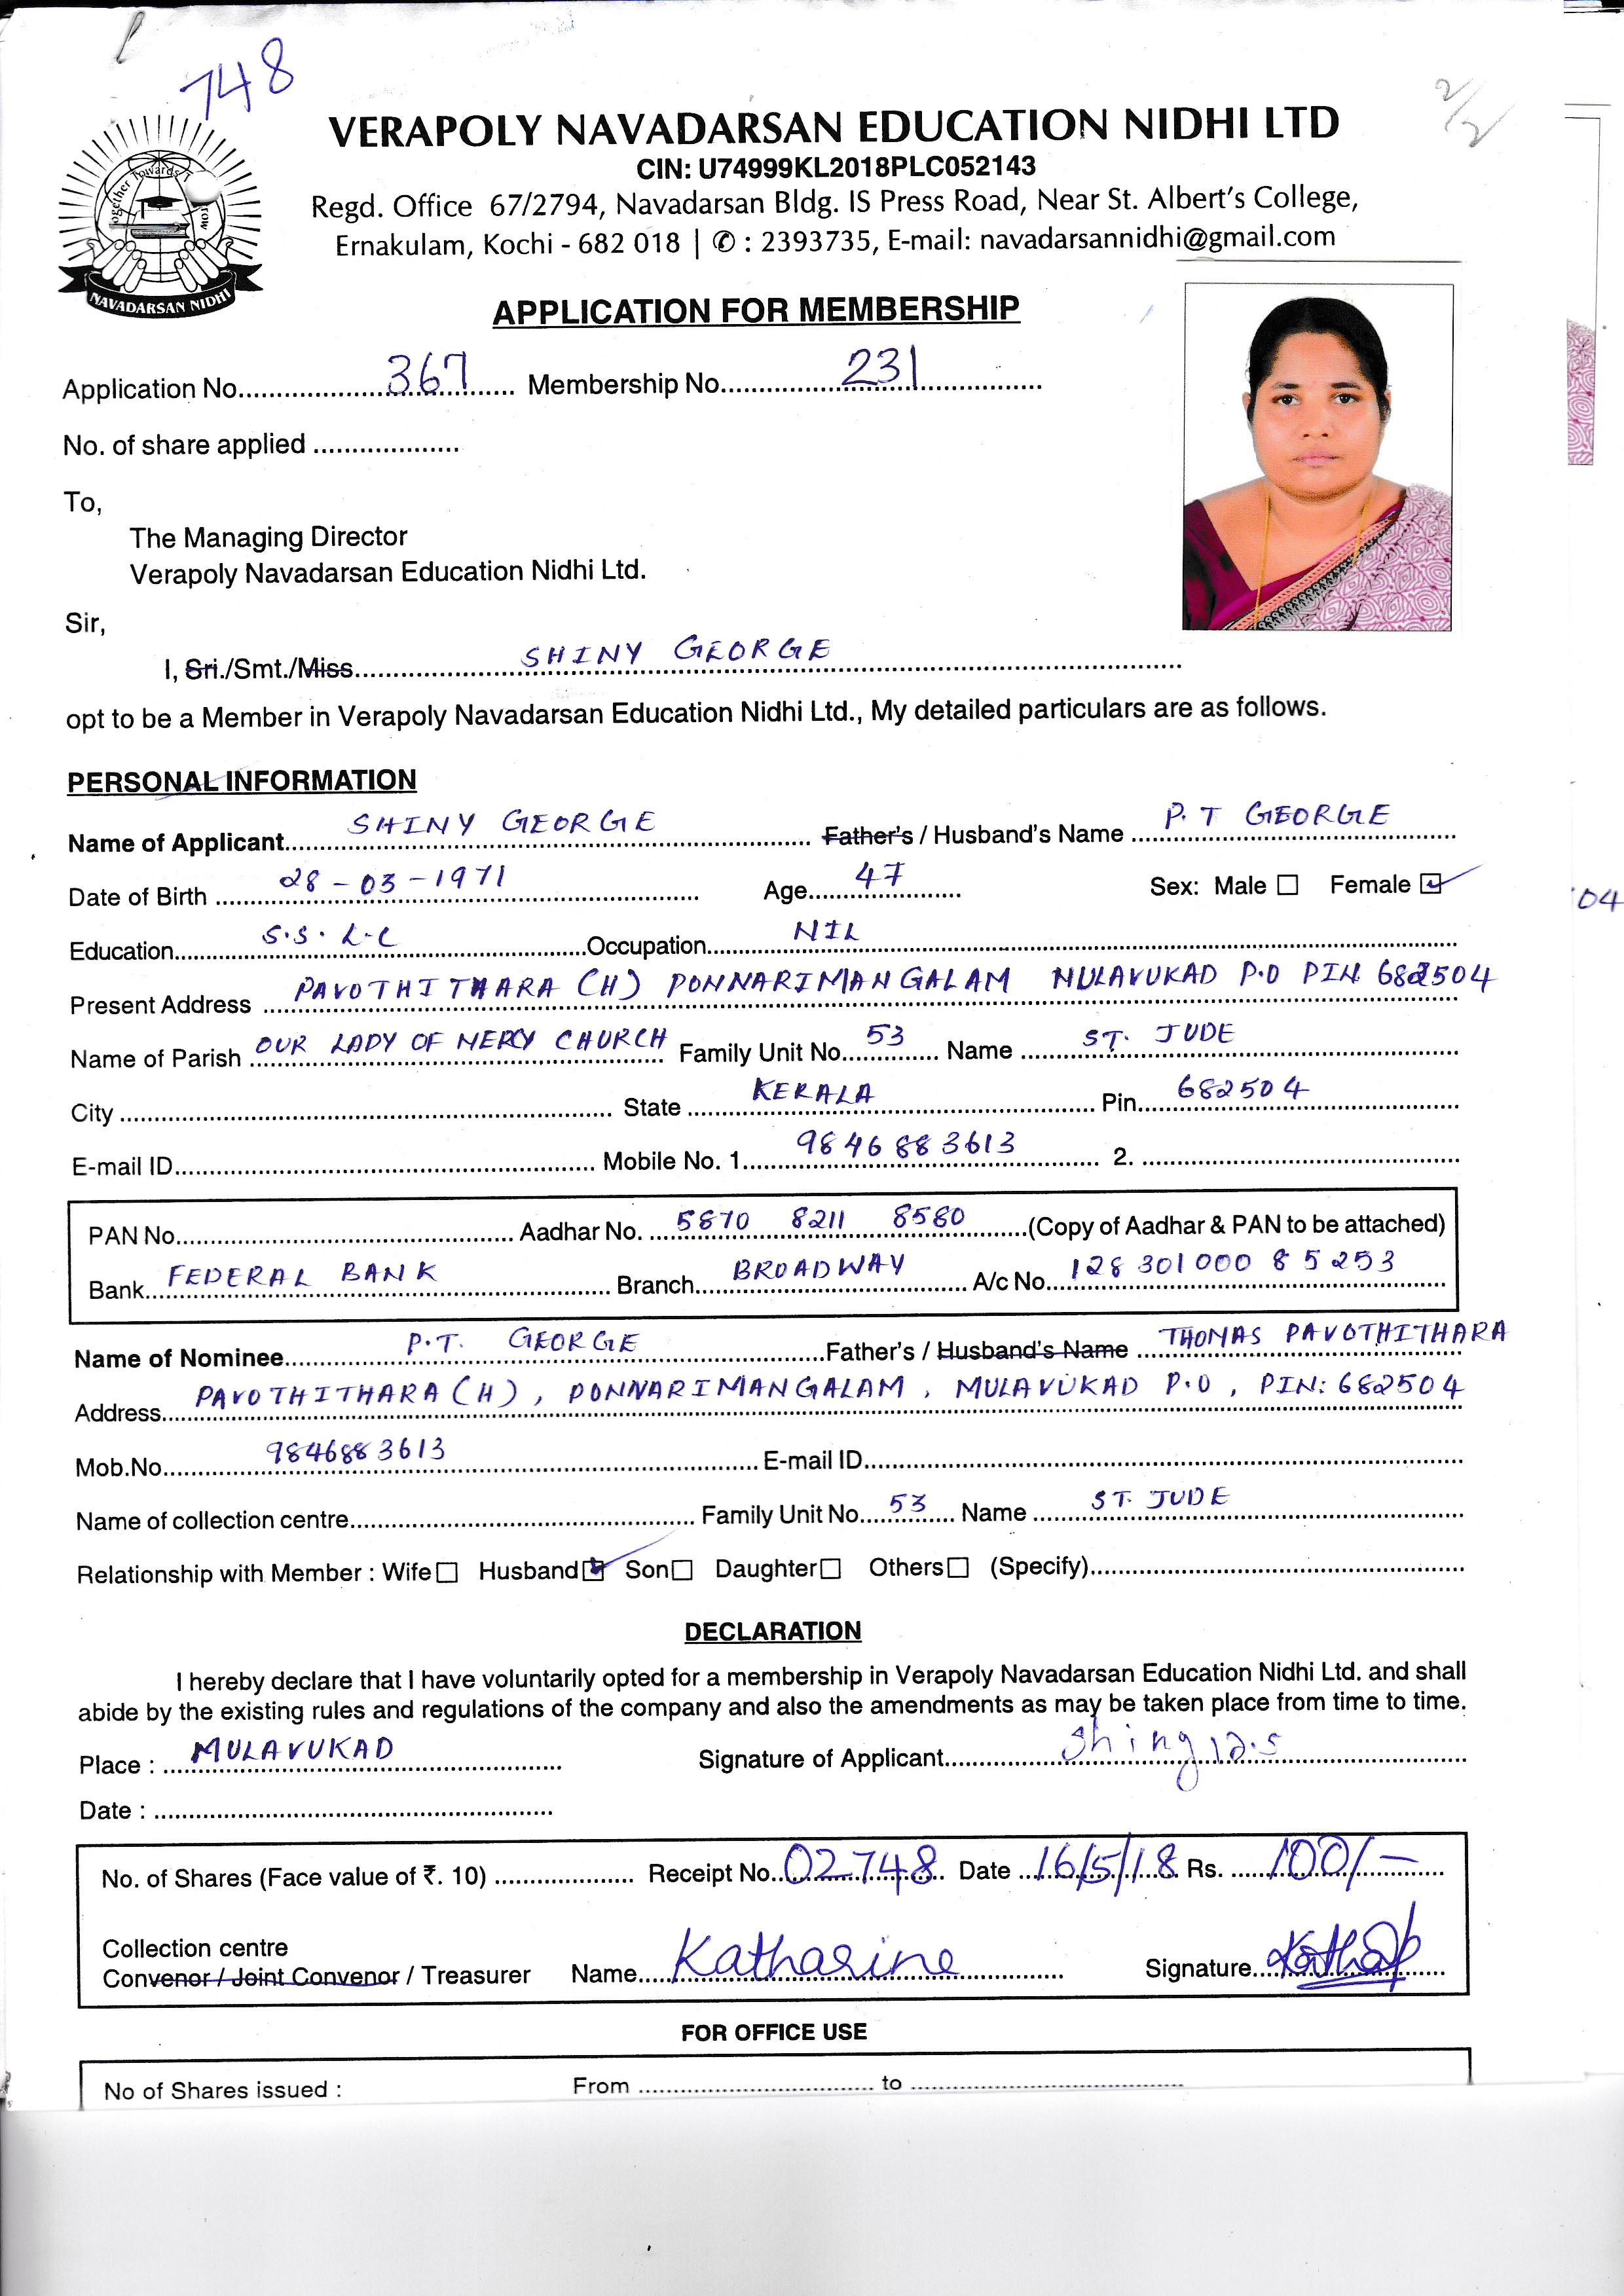 748
2/2
VERAPOLY NAVADARSAN EDUCATION NIDHI LTD
CIN: U74999KL2018PLC052143
Regd. Office 67/2794, Navadarsan Bldg. IS Press Road, Near St. Albert's College,
Ernakulam, Kochi - 682 018 | ✆ : 2393735, E-mail: navadarsannidhi@gmail.com
Together Towards T row
NAVADARSAN NIDHI
APPLICATION FOR MEMBERSHIP
Application No. 367 Membership No. 231
No. of share applied
To,
The Managing Director
Verapoly Navadarsan Education Nidhi Ltd.
Sir,
I, Sri./Smt./Miss SHINY GEORGE
opt to be a Member in Verapoly Navadarsan Education Nidhi Ltd., My detailed particulars are as follows.
PERSONAL INFORMATION
Name of Applicant SHINY GEORGE Father's / Husband's Name P. T GEORGE
Date of Birth 28 - 03 - 1971 Age 47 Sex: Male ☐ Female ☑
04
Education S.S.L.C Occupation NIL
Present Address PAVOTHITHARA (H) PONNARIMANGALAM MULAVUKAD P.O PIN 682504
Name of Parish OUR LADY OF MERCY CHURCH Family Unit No. 53 Name ST. JUDE
City State KERALA Pin 682504
E-mail ID Mobile No. 1 9846883613 2.
PAN No. Aadhar No. 5870 8211 8580 (Copy of Aadhar & PAN to be attached)
Bank FEDERAL BANK Branch BROADWAY A/c No. 12830100085253
Name of Nominee P.T. GEORGE Father's / Husband's Name THOMAS PAVOTHITHARA
Address PAVOTHITHARA (H), PONNARIMANGALAM, MULAVUKAD P.O, PIN: 682504
Mob.No. 9846883613 E-mail ID
Name of collection centre Family Unit No. 53 Name ST. JUDE
Relationship with Member : Wife ☐ Husband ☑ Son ☐ Daughter ☐ Others ☐ (Specify)
DECLARATION
I hereby declare that I have voluntarily opted for a membership in Verapoly Navadarsan Education Nidhi Ltd. and shall
abide by the existing rules and regulations of the company and also the amendments as may be taken place from time to time.
Place : MULAVUKAD Signature of Applicant
Date :
No. of Shares (Face value of ₹. 10) Receipt No. 02748 Date 16/5/18 Rs. 100/-
Collection centre
Convenor / Joint Convenor / Treasurer Name Katharine Signature
FOR OFFICE USE
No of Shares issued : From to